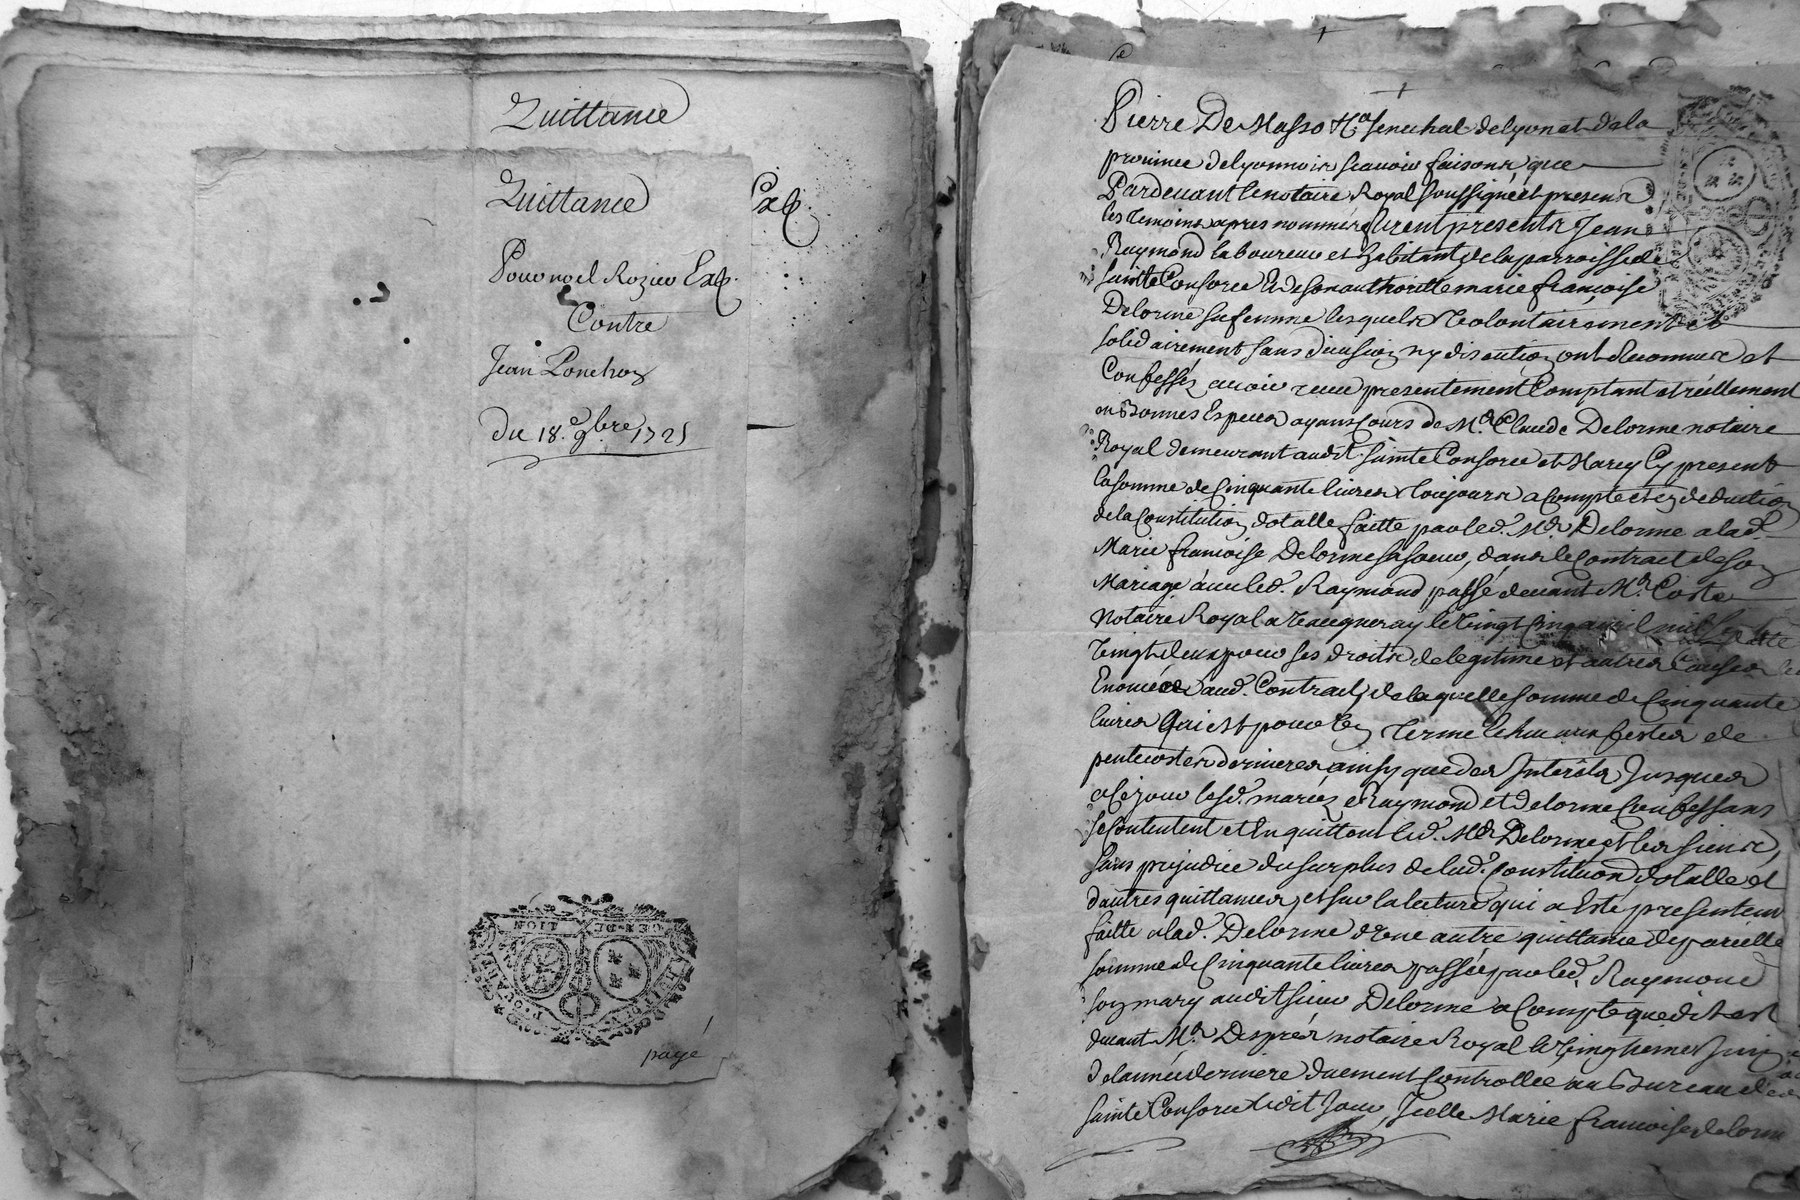 Quittance
Quittance
Exp.
Pour noel Rozier Exp.
Contre
Jean Ponchon
du 18.e 9bre 1725
GEN. DE LION
payé
Pierre De Masso
Senechal de lyon et de la
prouince de lyonnois scauoir faisons que
Pardeuant le notaire Royal soussigné et presens
les temoins apres nommés furent presents Jean
Raymond laboureur et habitant de la parroisse de
sainte Consorce et de son authorité marie françoise
Delorme sa femme lesquels volontairement et
solidairement sans diuision ny discution ont Reconnus et
Confessés auoir receu presentement Comptant et réellement
en Bonnes Especes ayans Cours de Me. Claude Delorme notaire
Royal demeurant audit sainte Consorce et Marcy Cy present
la somme de Cinquante liures toujours a Compte et en deduction
de la Constitution dotalle faitte par led. Me. Delorme a lad.
Marie francoise Delorme sa soeur, dans le Contract de son
Mariage auec led. Raymond passé deuant Me. Coste
Notaire Royal a Vaugneray le Vingt Cinq auril mil sept cent
Vingt deux pour ses droits de legitime et autres Causes
Enoncées aud. Contract, de laquelle somme de Cinquante
liures qui est pour le Terme Echu aux festes de
pentecostes dernieres, ainsy que des Interêts Jusques
a Ce jour lesd. mariés Raymond et Delorme Confessans
se Contentent et En quittent led. Me. Delorme et les siens,
sans prejudice du surplus de lad. Constitution dotalle et
d'autres quittances, et sur la lecture qui a Esté presentement
faitte a lad. Delorme d'une autre quittance de pareille
somme de Cinquante liures passée par led. Raymond
son mary audit sieur Delorme a Compte que dit est
deuant Me. Desprer notaire Royal le Vingtieme Juin
de l'année derniere duement Controllée au Bureau de
sainte Consorce ledit Jour, Icelle Marie francoise delorme